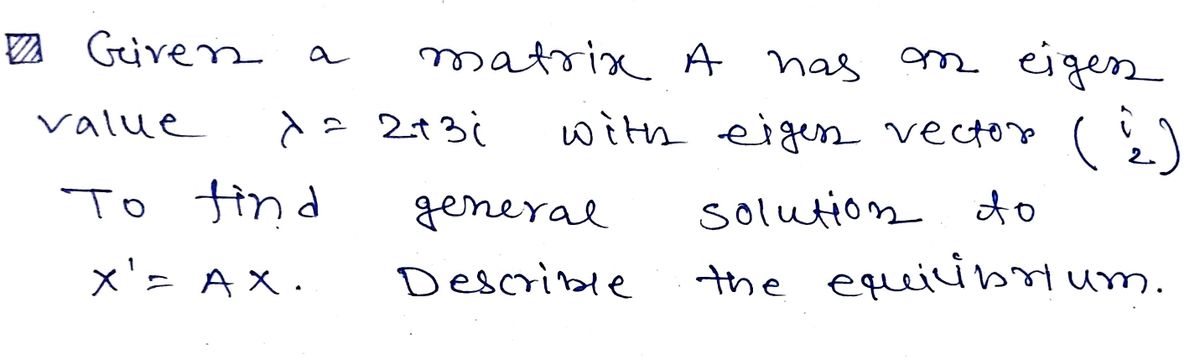 Given a matrix A has an eigen
value λ = 2+3i with eigen vector (i 2)
To find general solution to
x' = AX. Describe the equilibrium.